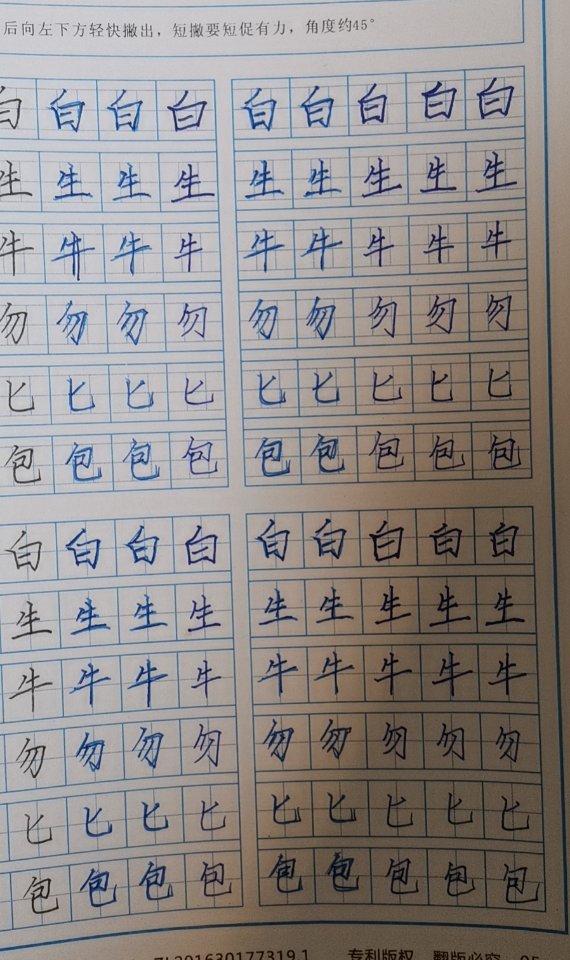 后向左下方轻快撇出，短撇要短促有力，角度约45°
白 白 白 白 白 白 白 白 白
生 生 生 生 生 生 生 生 生
牛 牛 牛 牛 牛 牛 牛 牛 牛
勿 勿 勿 勿 勿 勿 勿 勿 勿
匕 匕 匕 匕 匕 匕 匕 匕 匕
包 包 包 包 包 包 包 包 包
白 白 白 白 白 白 白 白 白
生 生 生 生 生 生 生 生 生
牛 牛 牛 牛 牛 牛 牛 牛 牛
勿 勿 勿 勿 勿 勿 勿 勿 勿
匕 匕 匕 匕 匕 匕 匕 匕 匕
包 包 包 包 包 包 包 包 包
ZL201630177319.1 专利版权 翻版必究 05